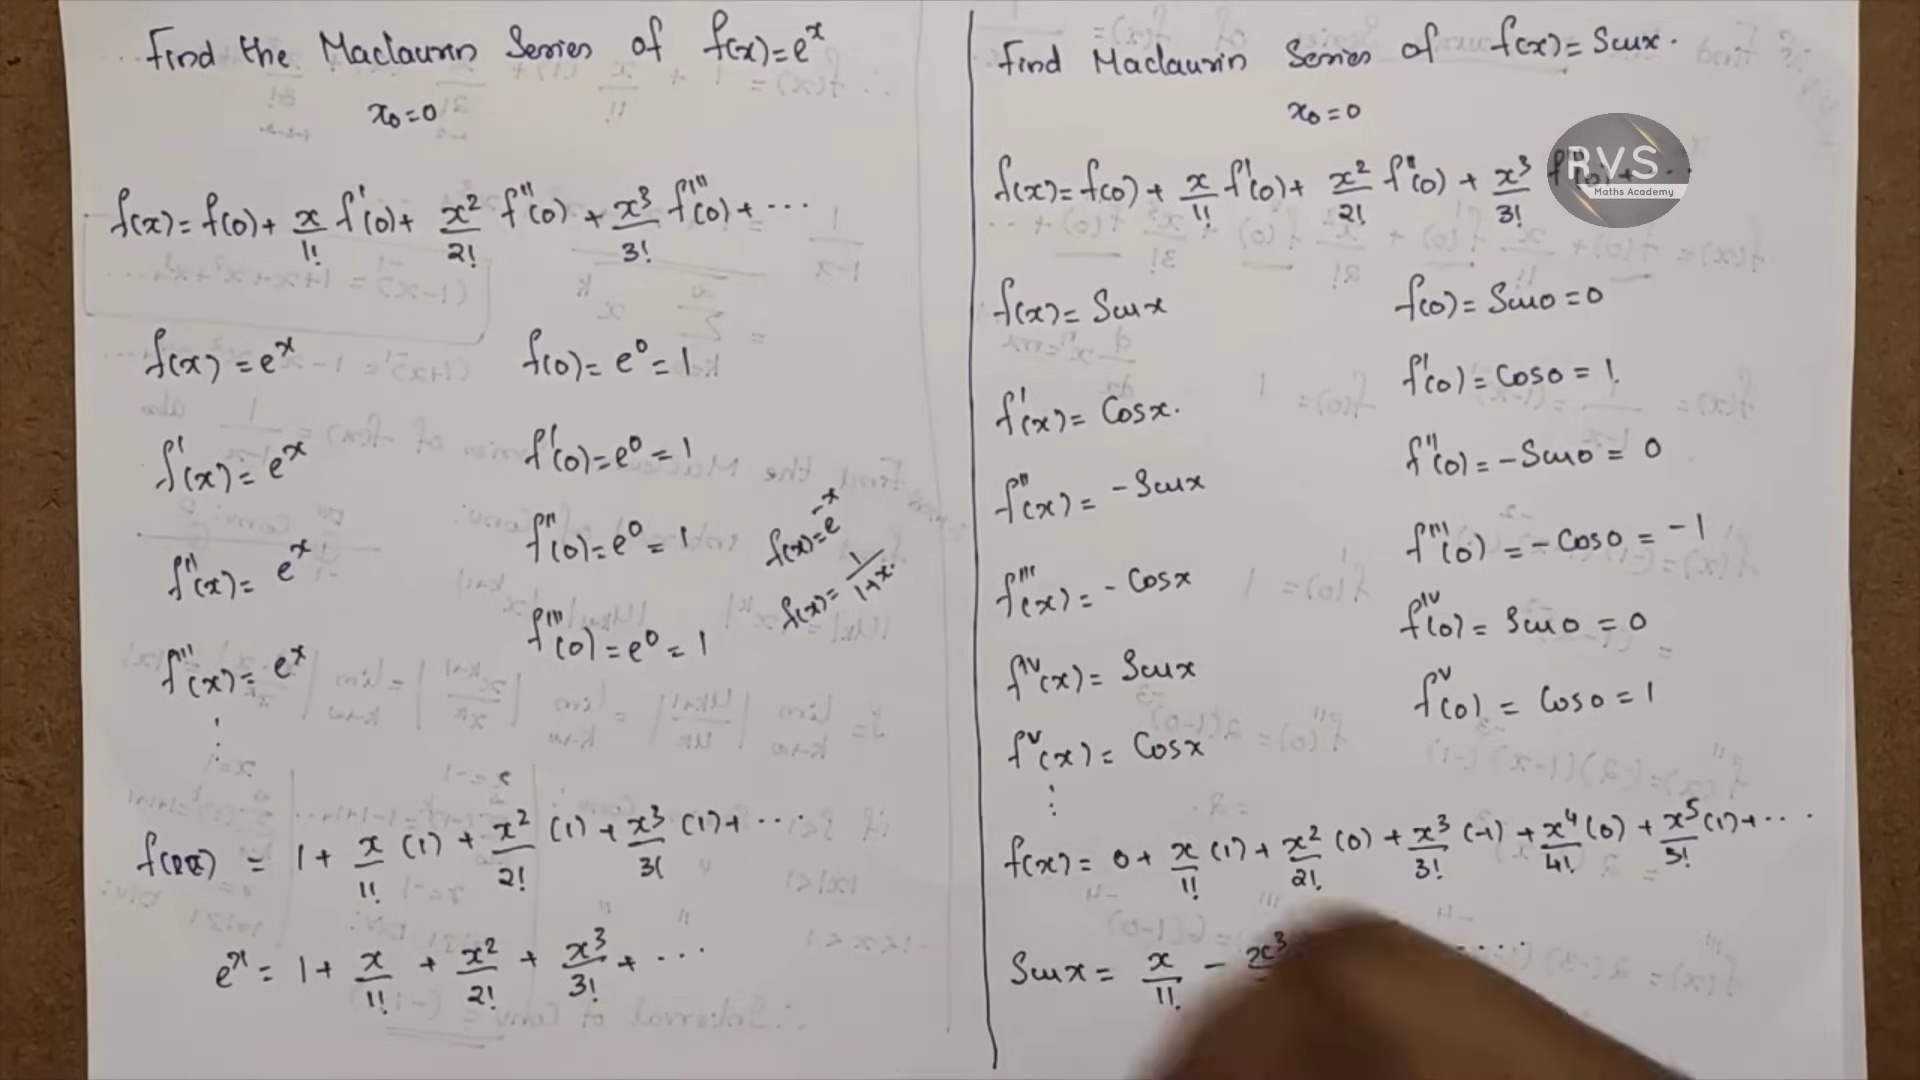 Find the Maclaurin Series of f(x)=e^x
x₀=0
f(x)= f(0)+ x/1! f'(0)+ x²/2! f''(0) + x³/3! f'''(0)+ ...
f(x) = e^x
f(0)= e⁰ = 1
f'(x)= e^x
f'(0)=e⁰ = 1
f''(x)= e^x
f''(0)=e⁰ = 1
f'''(x)= e^x
f'''(0)=e⁰ = 1
f(x)=e^-x
f(x)= 1/1+x.
= 1+ x/1! (1) + x²/2! (1) + x³/3! (1)+ ...
e^x = 1+ x/1! + x²/2! + x³/3! + ...
Find Maclaurin Series of f(x)= Sinx.
x₀=0
f(x)= f(0) + x/1! f'(0)+ x²/2! f''(0) + x³/3!
RVS
Maths Academy
f(x)= Sinx
f(0)= Sin0 =0
f'(x)= Cosx.
f'(0) = Cos0 = 1.
f''(x) = - Sinx
f''(0) = -Sin0 = 0
f'''(x) = - Cosx
f'''(0) = - Cos0 = -1
f^IV(x)= Sinx
f^IV(0) = Sin0 = 0
f^V(x)= Cosx
f^V(0) = Cos0 = 1
f(x)= 0+ x/1! (1)+ x²/2! (0) + x³/3! (-1) + x⁴/4! (0) + x⁵/5! (1)+ ...
Sinx = x/1! - x³